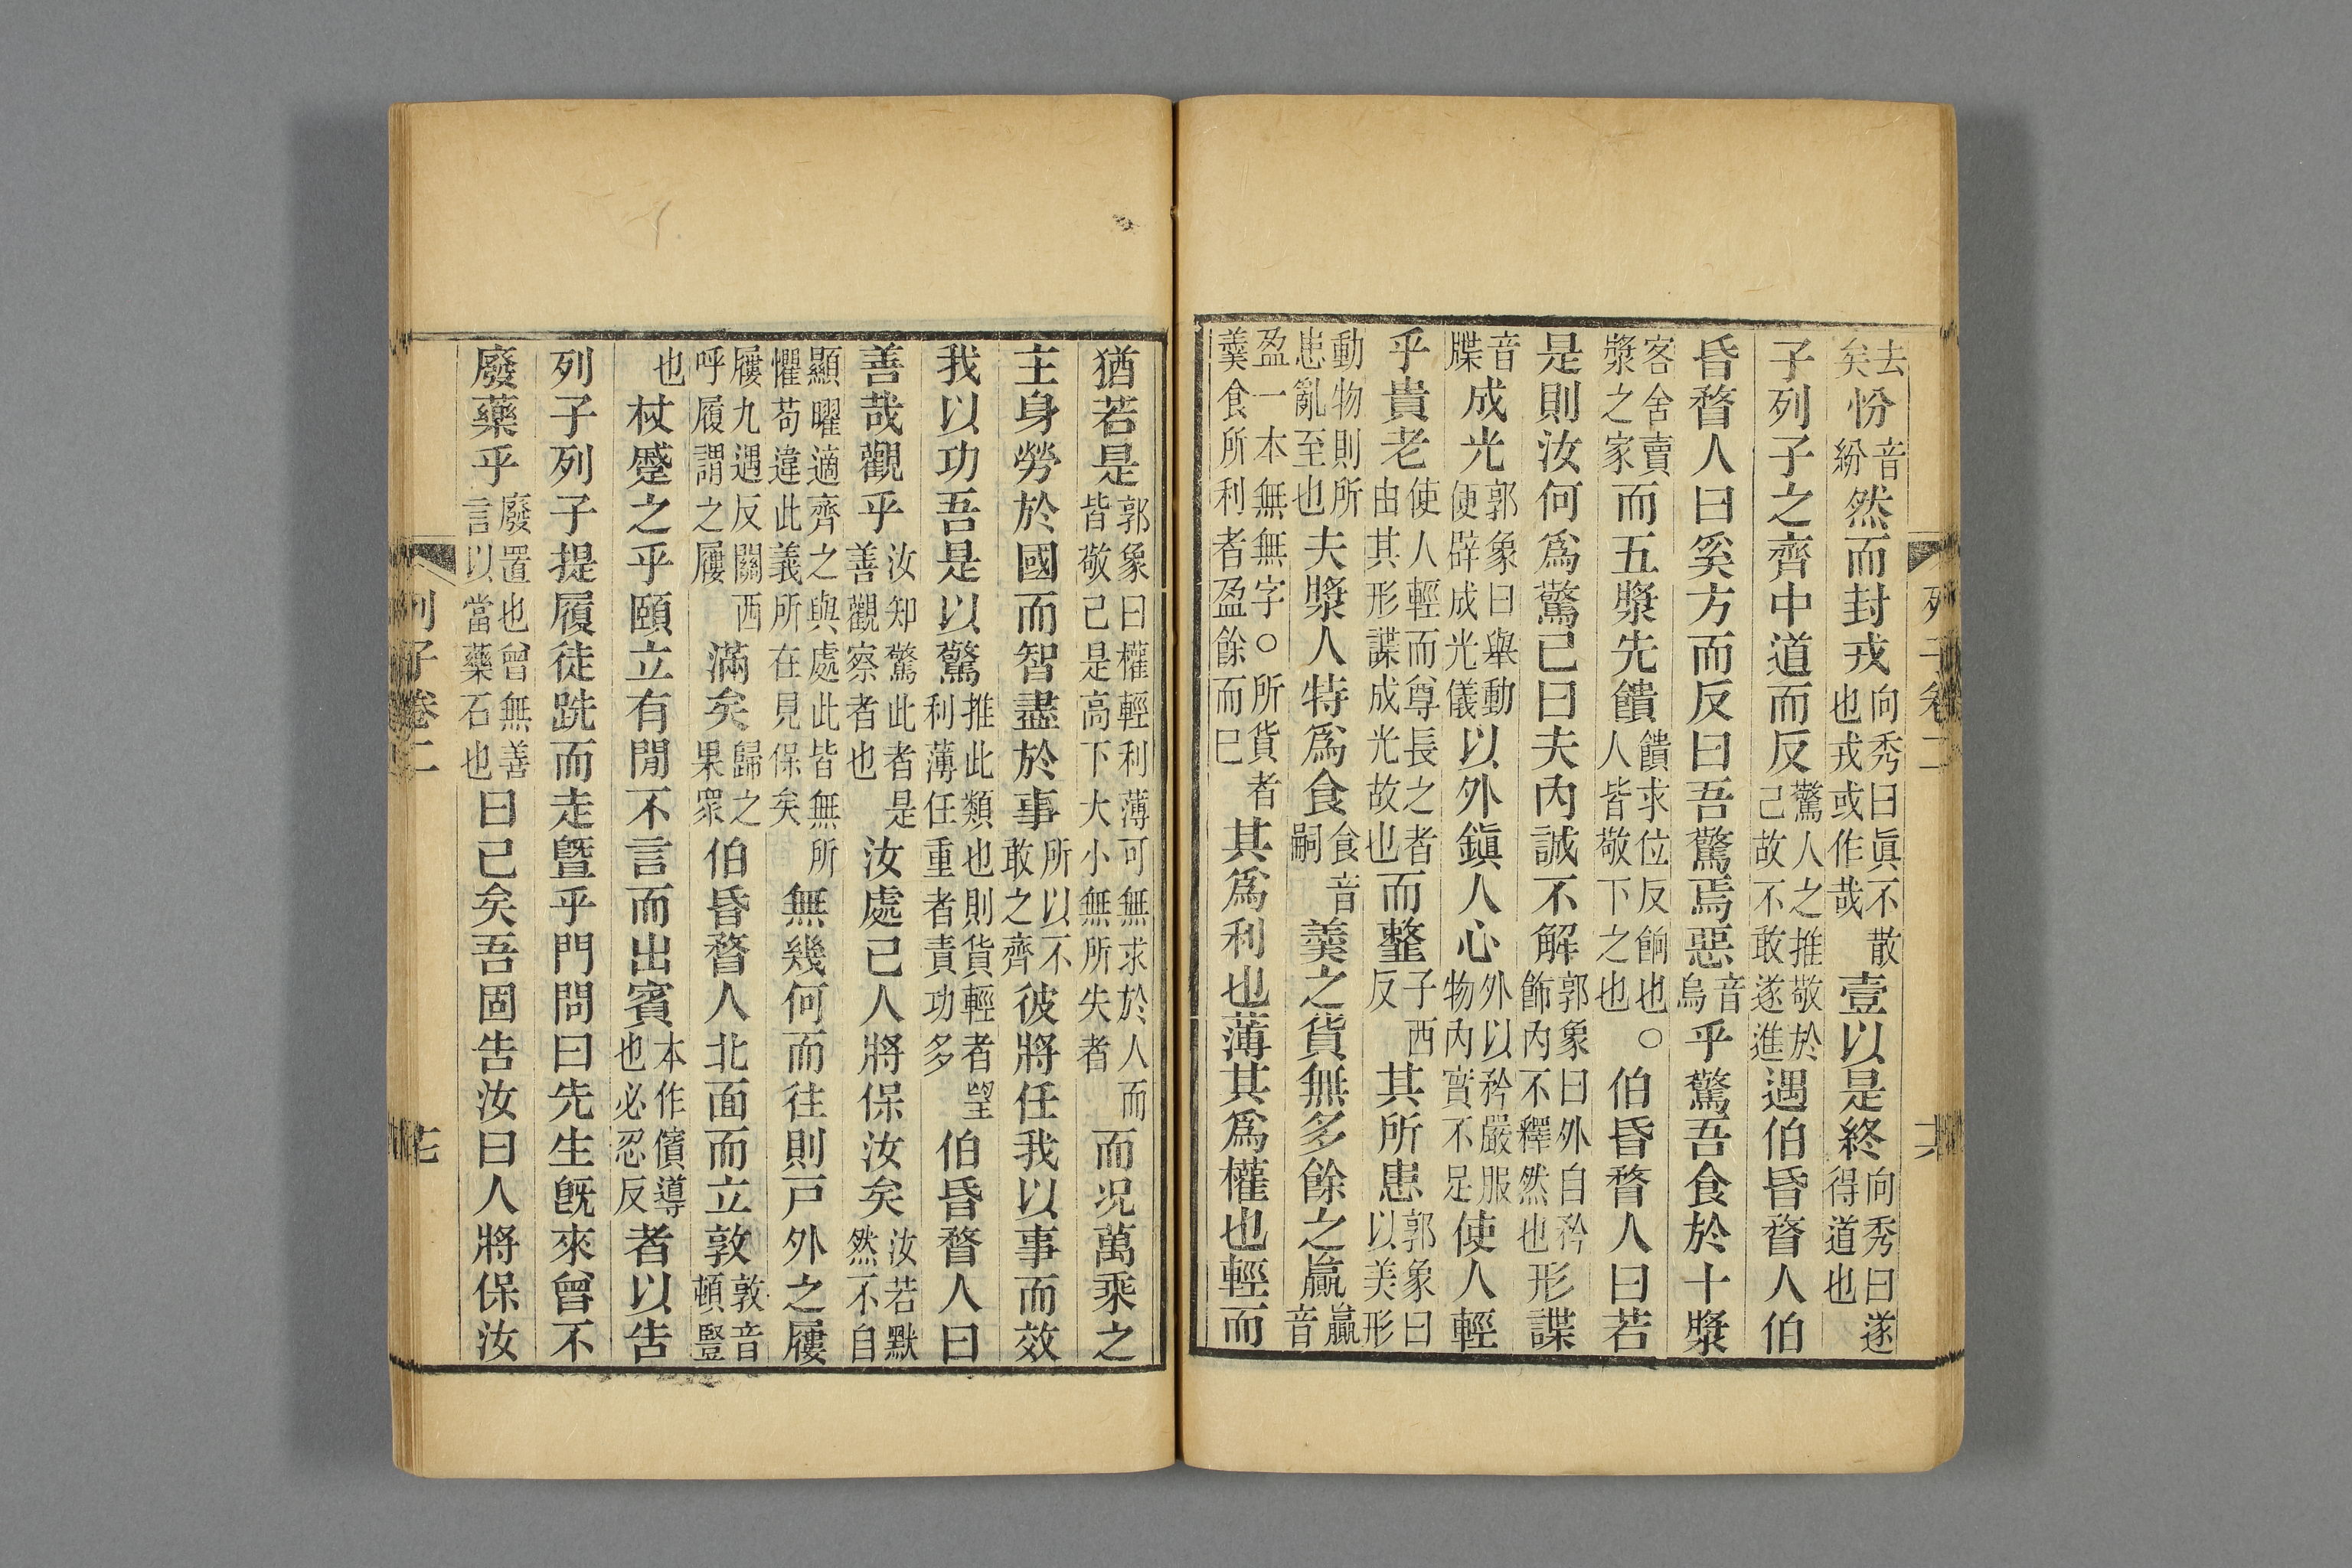 去矣㤋音紛然而封戎向秀曰眞不散也戎或作哉壹以是終向秀曰遂得道也
子列子之齊中道而反驚人之推敬於己故不敢遂進遇伯昏瞀人伯
昏瞀人曰奚方而反曰吾驚焉惡音烏乎驚吾食於十漿
客舍賣漿之家而五漿先饋饋求位反餉也○人皆敬下之也伯昏瞀人曰若
是則汝何爲驚已曰夫內誠不解郭象曰外自矜飾內不釋然也形諜
音牒成光郭象曰舉動便辟成光儀以外鎭人心外以矜嚴服物內實不足使人輕
乎貴老使人輕而尊長之者由其形諜成光故也而䪡子西反其所患郭象曰以美形
動物則所患亂至也夫漿人特爲食食音嗣羹之貨無多餘之贏贏音
盈一本無無字○所貨者羹食所利者盈餘而已其爲利也薄其爲權也輕而
猶若是郭象曰權輕利薄可無求於人而皆敬己是高下大小無所失者而况萬乘之
主身勞於國而智盡於事所以不敢之齊彼將任我以事而效
我以功吾是以驚推此類也則貨輕者望利薄任重者責功多伯昏瞀人曰
善哉觀乎汝知驚此者是善觀察者也汝處已人將保汝矣汝若默然不自
顯曜適齊之與處此皆無所懼苟違此義所在見保矣無幾何而往則戸外之屨
屨九遇反關西呼履謂之屨滿矣歸之果眾伯昏瞀人北面而立敦敦音頓豎
也杖蹙之乎頤立有閒不言而出賓本作儐導也必忍反者以告
列子列子提履徒跣而走曁乎門問曰先生旣來曾不
廢藥乎廢置也曾無善言以當藥石也曰已矣吾固告汝曰人將保汝
列子卷二